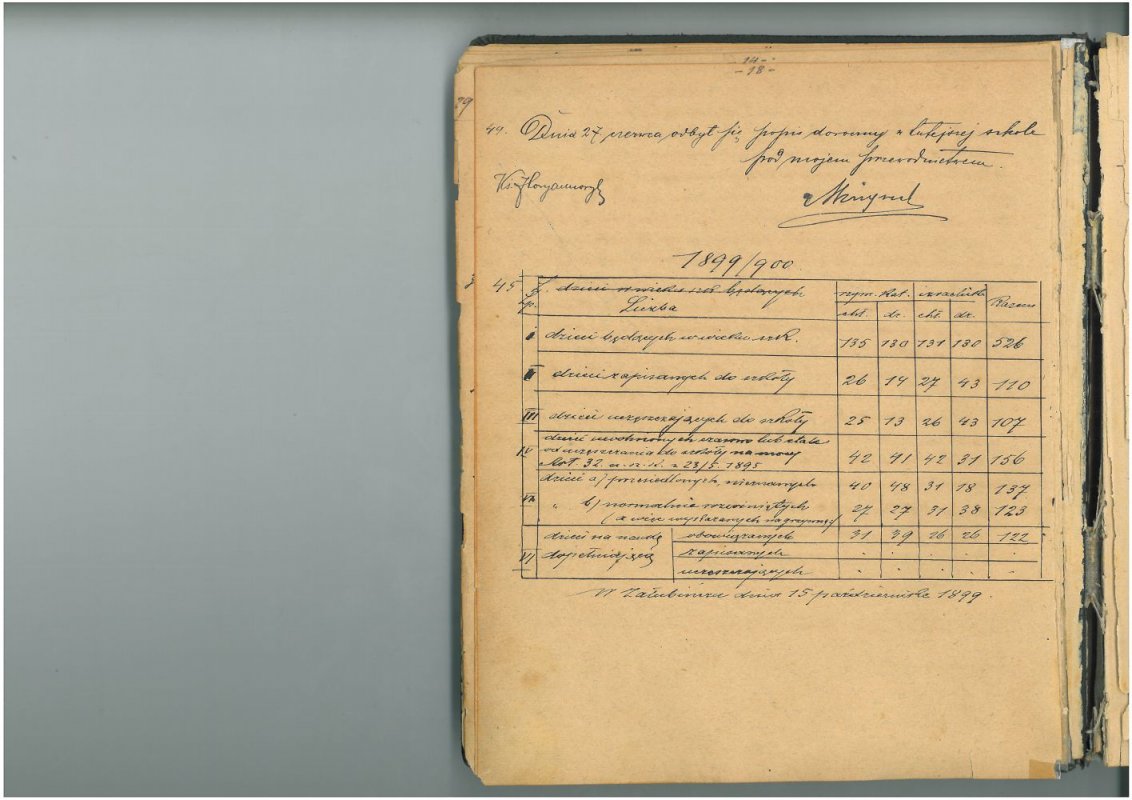 14 -
- 18 -
29
44. Dnia 27 czerwca odbył się popis doroczny w tutejszej szkole
pod mojem przewodnictwem.
Ks.
1899/900
45
L. dzieci w wieku szk. będących
Lp. Liczba rzym. kat. izraelickie Razem
chł. dz. chł. dz.
I dzieci będących w wieku szk. 135 130 131 130 526
II dzieci zapisanych do szkoły 26 14 27 43 110
III dzieci uczęszczających do szkoły 25 13 26 43 107
dzieci uwolnionych czasowo lub stale
IV od uczęszczania do szkoły na mocy 42 41 42 31 156
Art. 32. u. sz. k. z 23/5. 1895
dzieci a) przesiedlonych, nieznanych 40 48 31 18 137
V " b) normalnie rozwiniętych 27 27 31 38 123
(a więc wykazanych na grzywnę)
dzieci na naukę obowiązanych 31 39 26 26 122
VI dopełniającą zapisanych . . . . .
uczęszczających . . . . .
W dnia 15 października 1899.